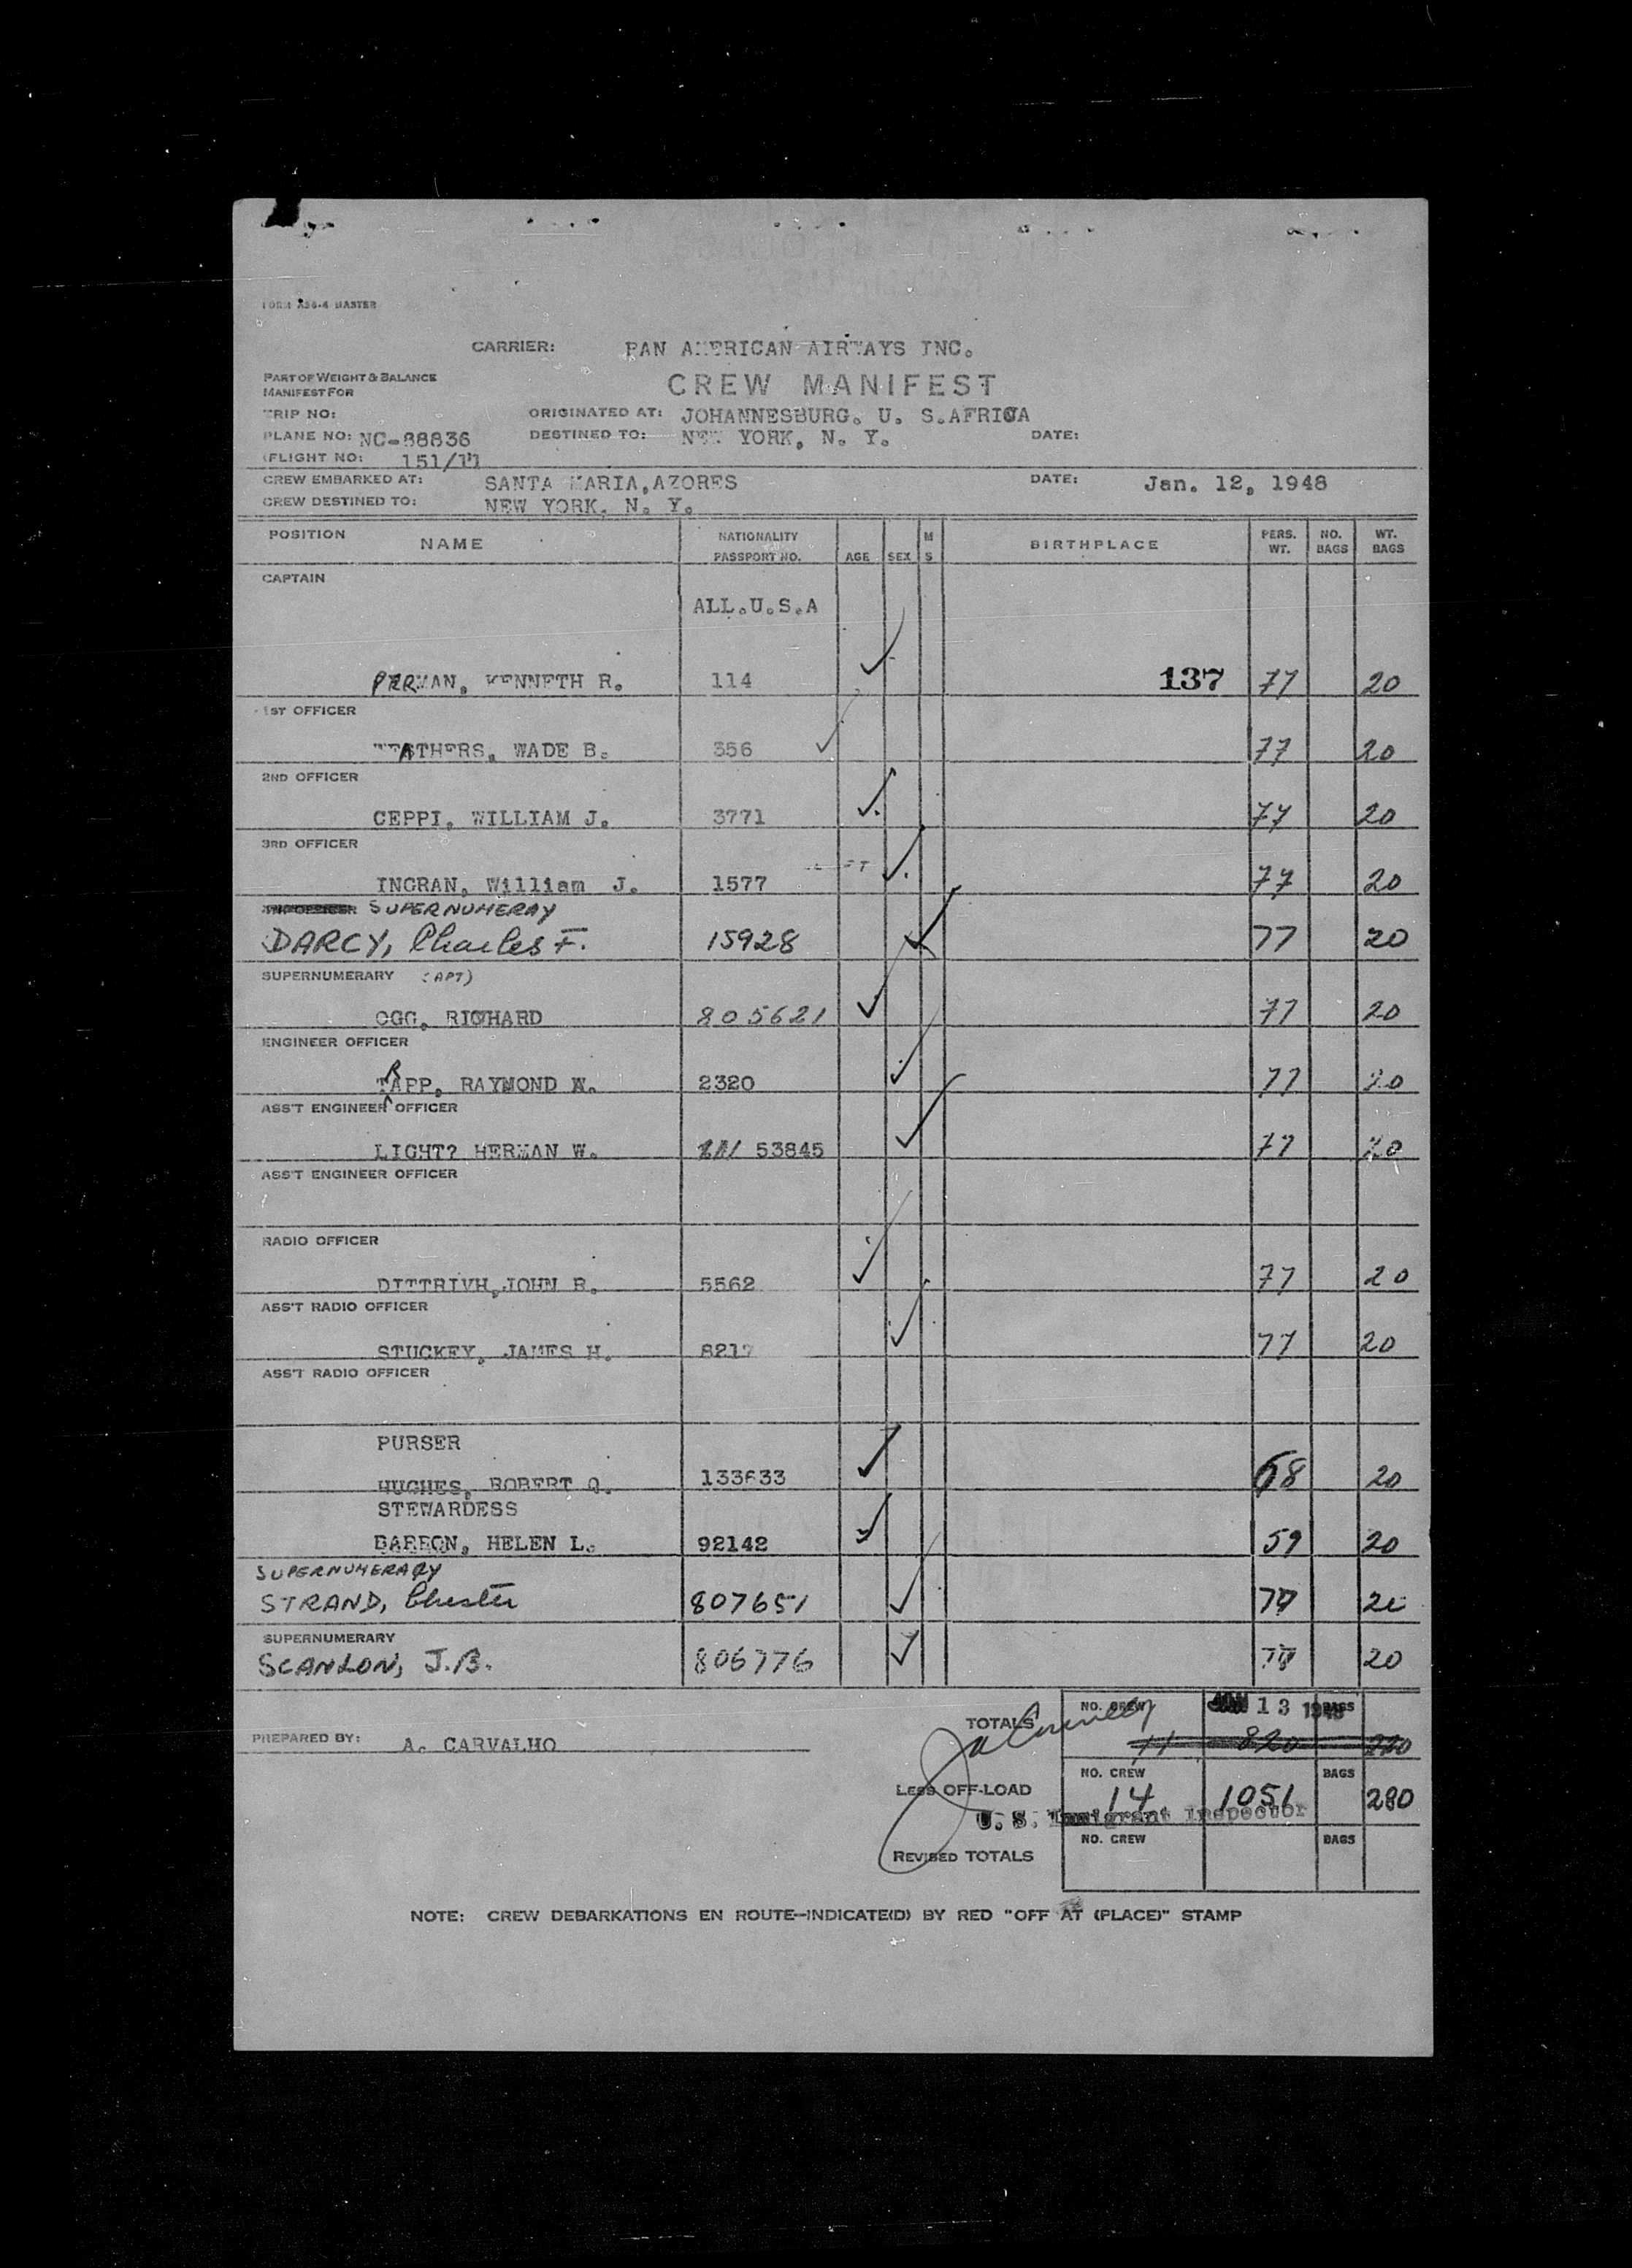 FORM A26-4 MASTER
CARRIER: PAN AMERICAN AIRWAYS INC.
PART OF WEIGHT & BALANCE
MANIFEST FOR
CREW MANIFEST
TRIP NO: ORIGINATED AT: JOHANNESBURG. U. S.AFRICA
PLANE NO: NC-88836 DESTINED TO: NEW YORK, N. Y. DATE:
FLIGHT NO: 151/11
CREW EMBARKED AT: SANTA MARIA,AZORES DATE: Jan. 12, 1948
CREW DESTINED TO: NEW YORK, N. Y.
POSITION NAME NATIONALITY PASSPORT NO. AGE SEX M S BIRTHPLACE PERS. WT. NO. BAGS WT. BAGS
CAPTAIN
ALL.U.S.A
PERMAN, KENNETH R. 114 137 77 20
1ST OFFICER
WEATHERS, WADE B. 356 77 20
2ND OFFICER
CEPPI, WILLIAM J. 3771 77 20
3RD OFFICER
INGRAN, William J. 1577 77 20
SUPERNUMERAY
DARCY, Charles F. 15928 77 20
SUPERNUMERARY (APT)
OGG, RICHARD 805621 77 20
ENGINEER OFFICER
TRAPP, RAYMOND W. 2320 77 20
ASS'T ENGINEER OFFICER
LIGHT? HERMAN W. 53845 77 20
ASS'T ENGINEER OFFICER
RADIO OFFICER
DITTRIVH,JOHN R. 5562 77 20
ASS'T RADIO OFFICER
STUCKEY, JAMES H. 8217 77 20
ASS'T RADIO OFFICER
PURSER
HUGHES, ROBERT Q. 133633 68 20
STEWARDESS
BARRON, HELEN L. 92142 59 20
SUPERNUMERARY
STRAND, Chester 807651 77 20
SUPERNUMERARY
SCANLON, J.B. 806776 77 20
TOTALS NO. CREW JAN 13 1948 BAGS
PREPARED BY: A. CARVALHO 11 820 220
LESS OFF-LOAD NO. CREW 14 1051 BAGS 280
U. S. Immigrant Inspector
REVISED TOTALS NO. CREW BAGS
NOTE: CREW DEBARKATIONS EN ROUTE--INDICATE(D) BY RED "OFF AT (PLACE)" STAMP